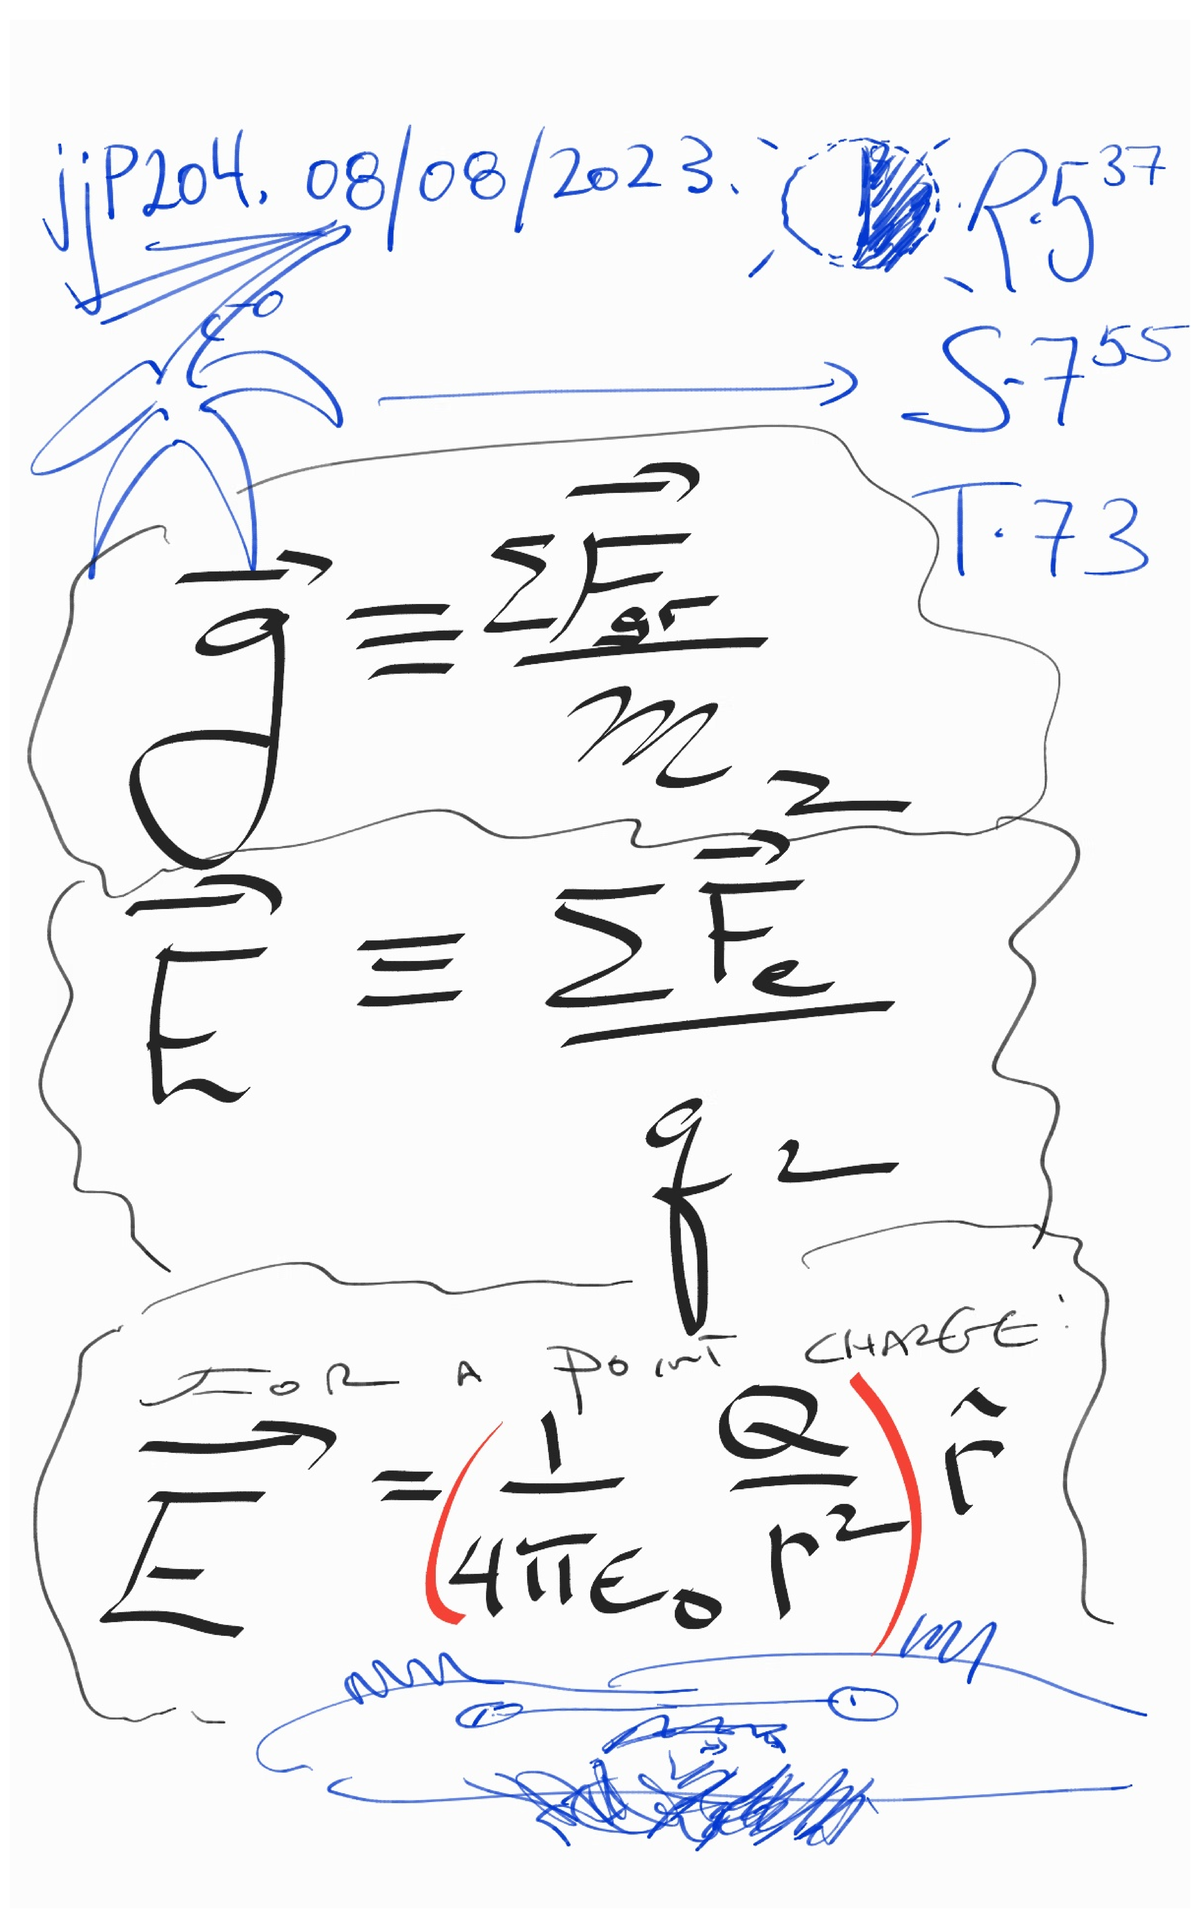 jjP204. 08/08/2023. R.5³⁷
S-7⁵⁵
T.73
g⃗ ≡ ΣF⃗gr / m₂
E⃗ ≡ ΣF⃗e / q₂
FOR A POINT CHARGE:
E⃗ = (1/4πϵ₀ Q/r²) r̂